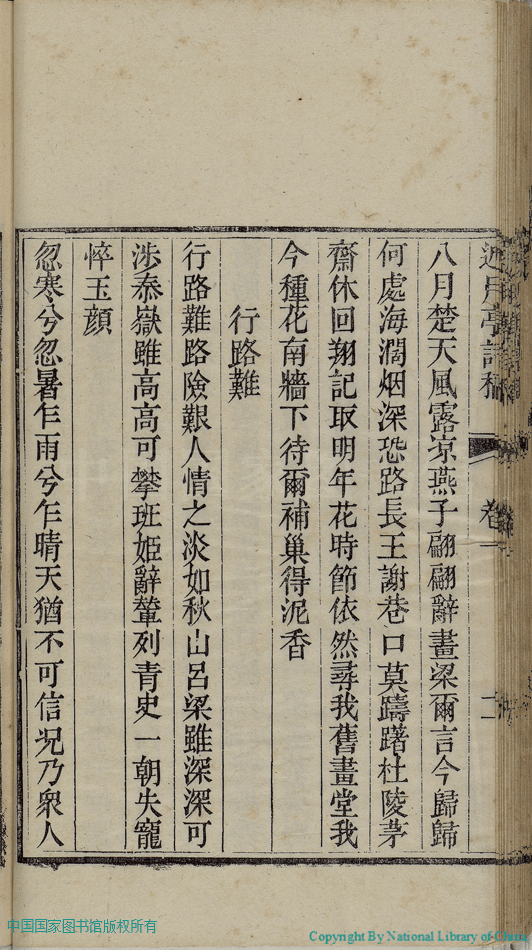 近月亭詩稿 卷一 二
八月楚天風露凉燕子翩翩辭畫梁爾言今歸歸
何處海濶烟深恐路長王謝巷口莫躊躇杜陵茅
齋休回翔記取明年花時節依然尋我舊畫堂我
今種花南牆下待爾補巢得泥香
行路難
行路難路險艱人情之淡如秋山呂梁雖深深可
涉泰嶽雖高高可攀班姬辭輦列青史一朝失寵
悴玉顔
忽寒兮忽暑乍雨兮乍晴天猶不可信况乃衆人
中国国家图书馆版权所有
Copyright By National Library of China